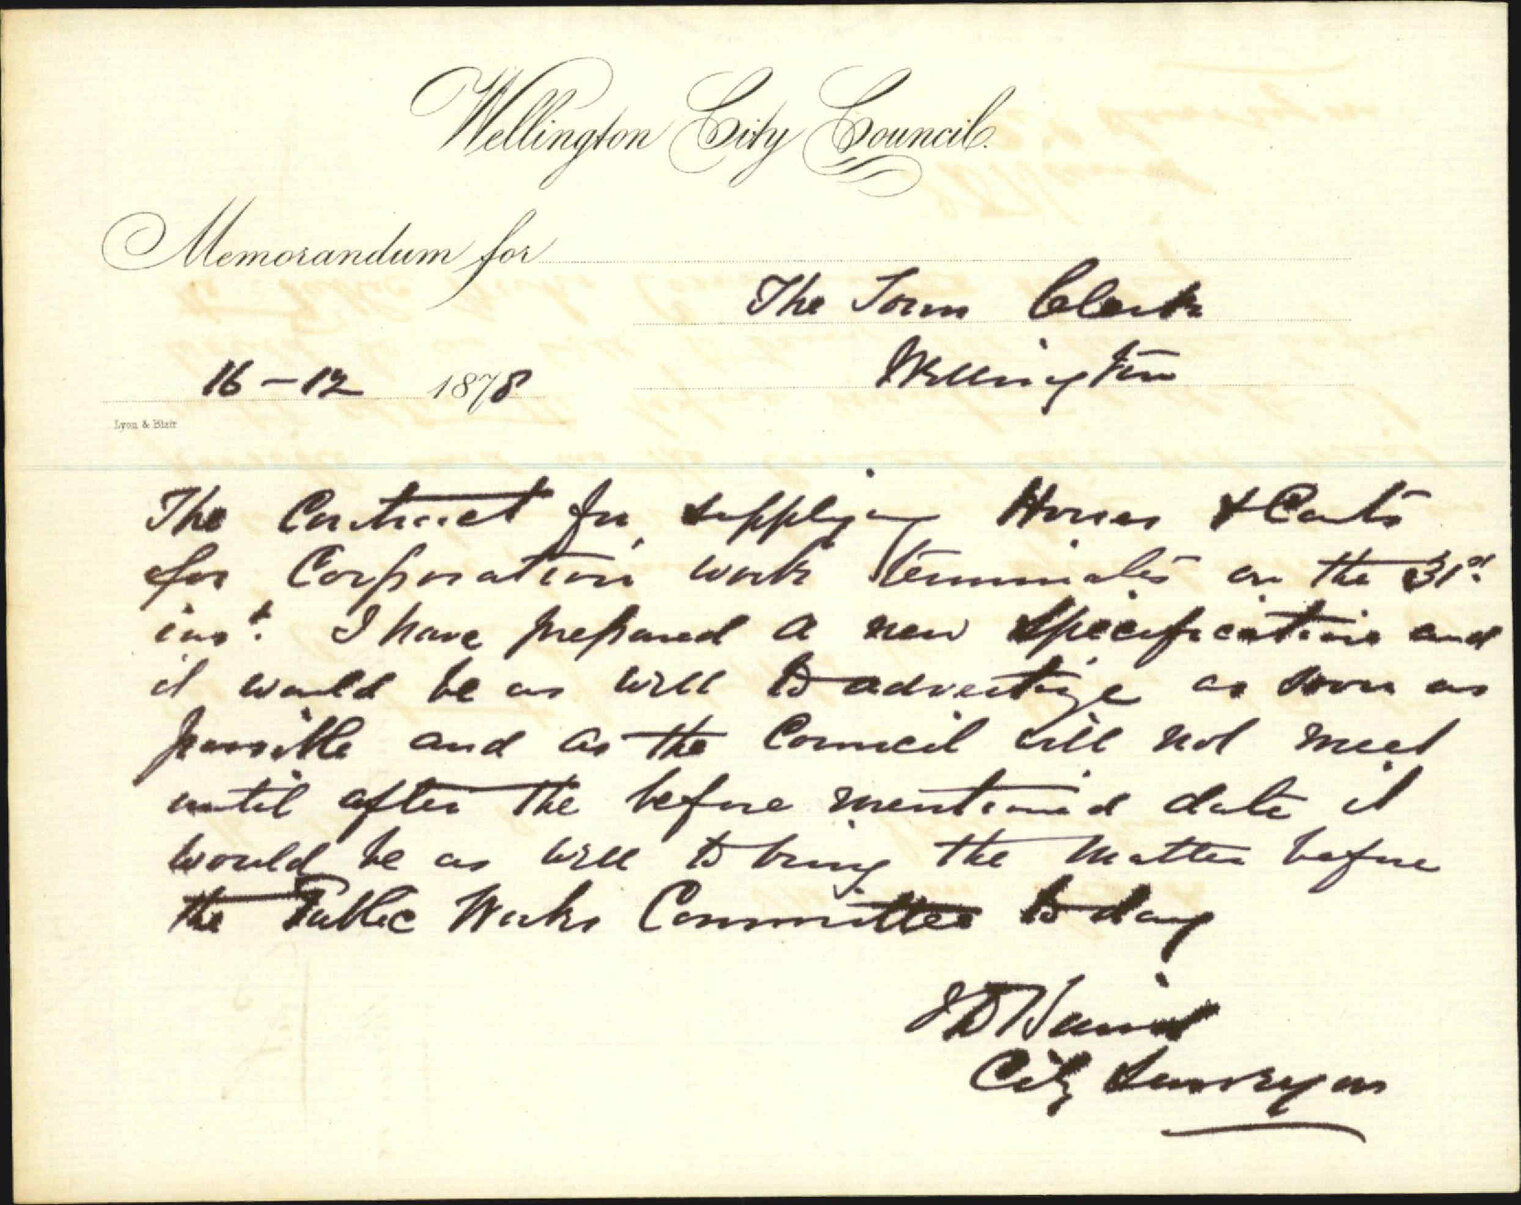 Wellington City Council.
Memorandum for
The Town Clerk
16-12 1878
Wellington
Lyon & Blair
The Contract for supplying Horses & Carts
for Corporation work terminates on the 31st.
inst. I have prepared a new specification and
it would be as well to advertize as soon as
possible and as the Council will not meet
until after the before mentioned date it
would be as well to bring the matter before
the Public Works Committee to day
J D Baird
City Surveyor